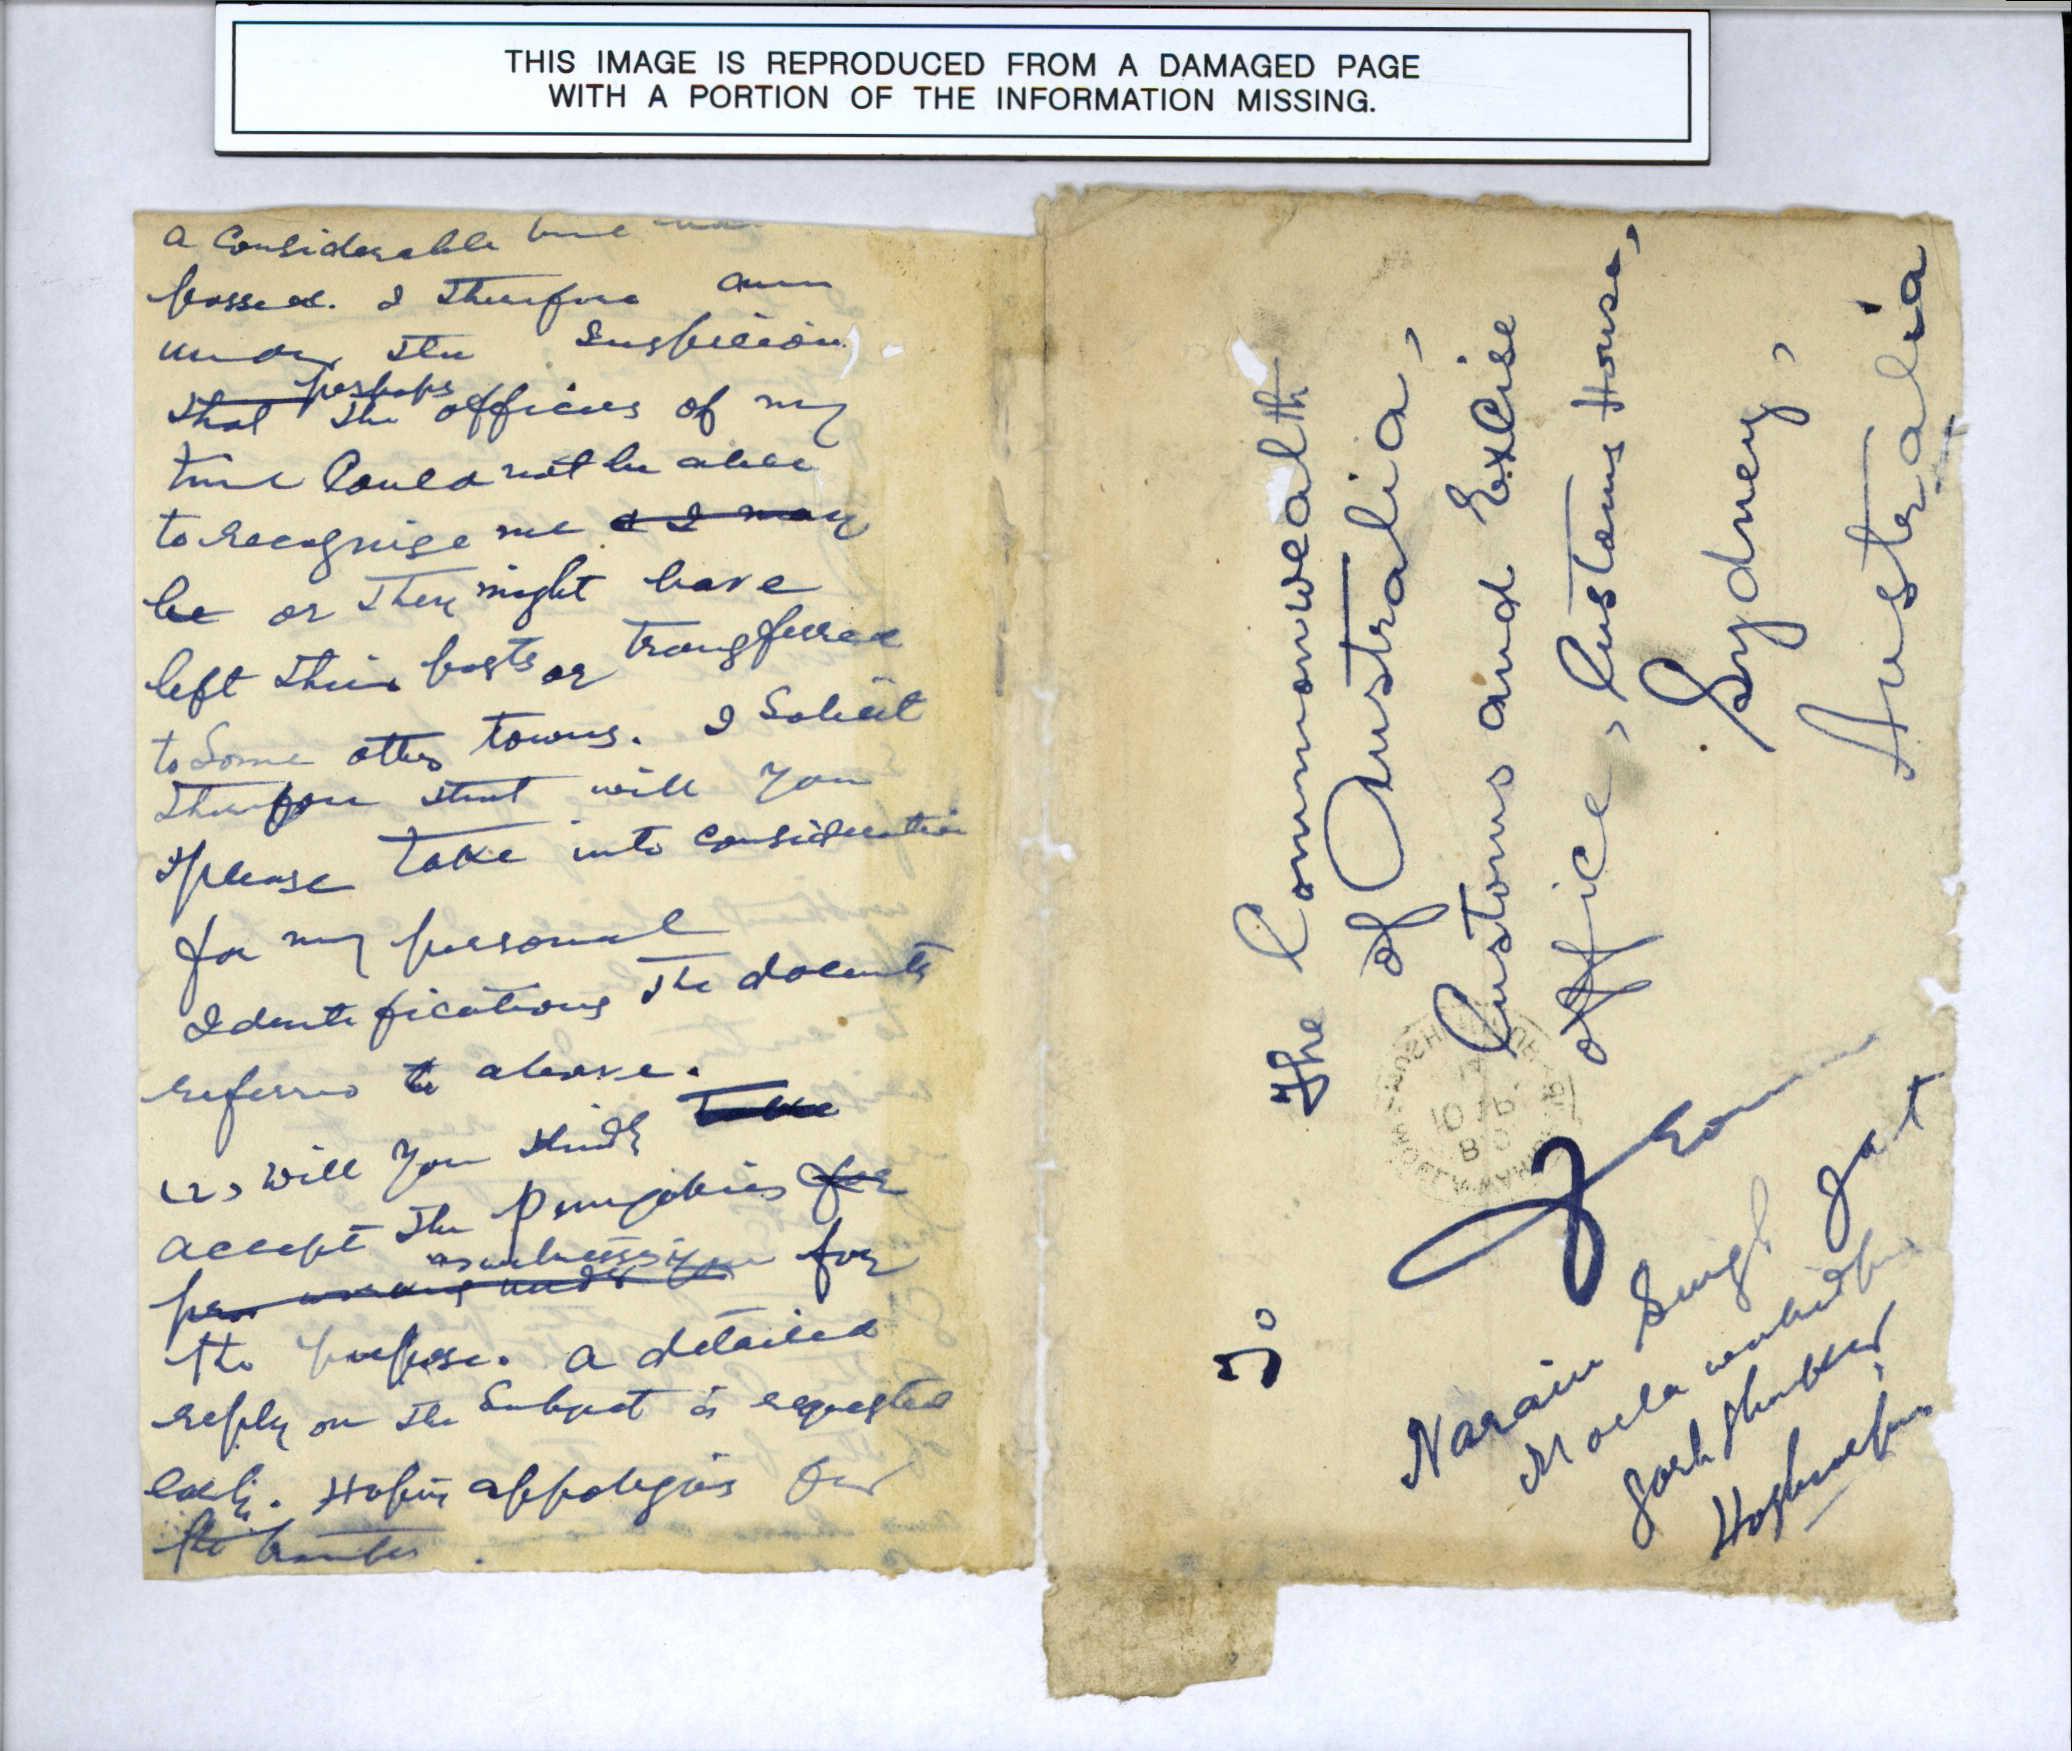 THIS IMAGE IS REPRODUCED FROM A DAMAGED PAGE
WITH A PORTION OF THE INFORMATION MISSING.
a considerable time
passed. I therefore am
under the suspicion
that perhaps the officers of my
time could not be able
to recognise me & I may
be or they might have
left their posts or transferred
to some other towns. I solicit
therefore that will you
please take into consideration
for my personal
Identifications the docuents
referred to above.
(2) will you kindly take
accept the Punjabies for
for
the purpose. A detailed
reply on the subject is requested
early. Hoping appologies for
the trouble.
To
The Commonwealth
of Australia,
Customs and Excise
office, Customs House,
Sydney,
Australia
From
Narain Singh Jat
Garhshanker
Hoshiarpur